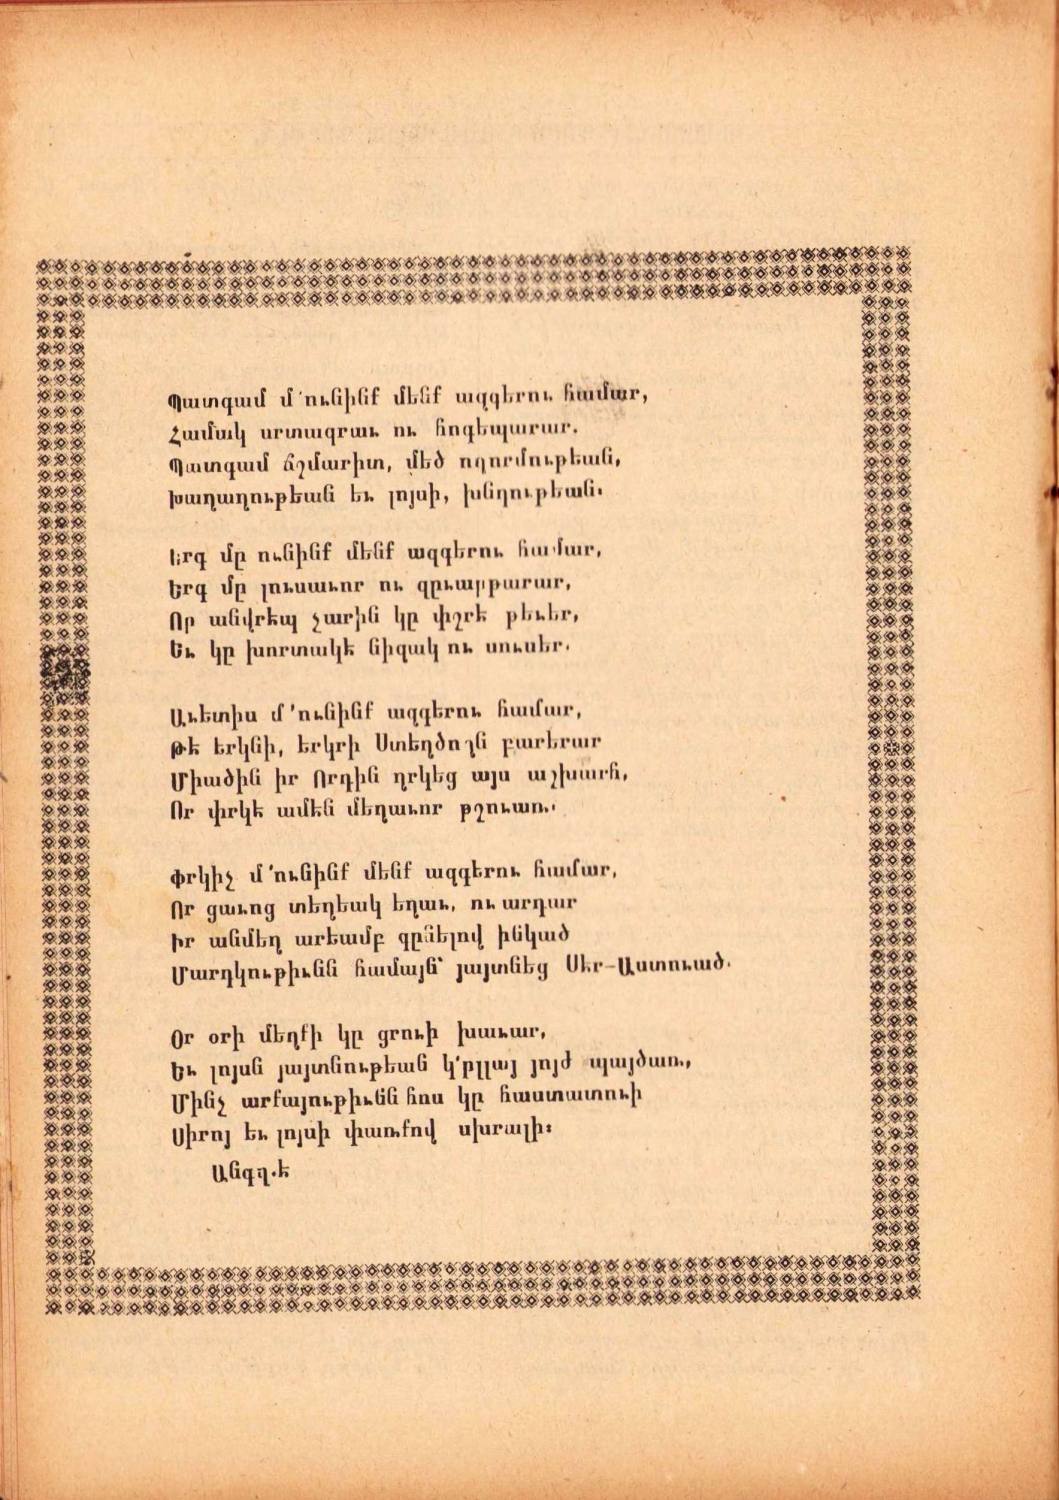 Պատգամ մ'ունինք մենք ազգերու համար,
Համակ սրտագրաւ ու հոգեպարար.
Պատգամ ճշմարիտ, մեծ ողորմութեան,
Խաղաղութեան եւ լոյսի, խնդութեան.
Երգ մը ունինք մենք ազգերու համար,
Երգ մը լուսաւոր ու զըւարթարար,
Որ անվրէպ չարին կը փշրէ թեւեր,
Եւ կը խորտակէ նիզակ ու սուսեր.
Աւետիս մ'ունինք ազգերու համար,
Թէ երկնի, երկրի Ստեղծողն բարերար
Միածին իր Որդին ղրկեց այս աշխարհ,
Որ փրկէ ամէն մեղաւոր թշուառ.
Փրկիչ մ'ունինք մենք ազգերու համար,
Որ ցաւոց տեղեակ եղաւ, ու արդար
Իր անմեղ արեամբ գընելով ինկած
Մարդկութիւնն համայն՝ յայտնեց Սէր-Աստուած.
Օր օրի մեղքի կը ցրուի խաւար,
Եւ լոյսն յայտնութեան կ'ըլլայ յոյժ պայծառ,
Մինչ արքայութիւնն հոս կը հաստատուի
Սիրոյ եւ լոյսի փառքով սխրալի։
Անգղ.է